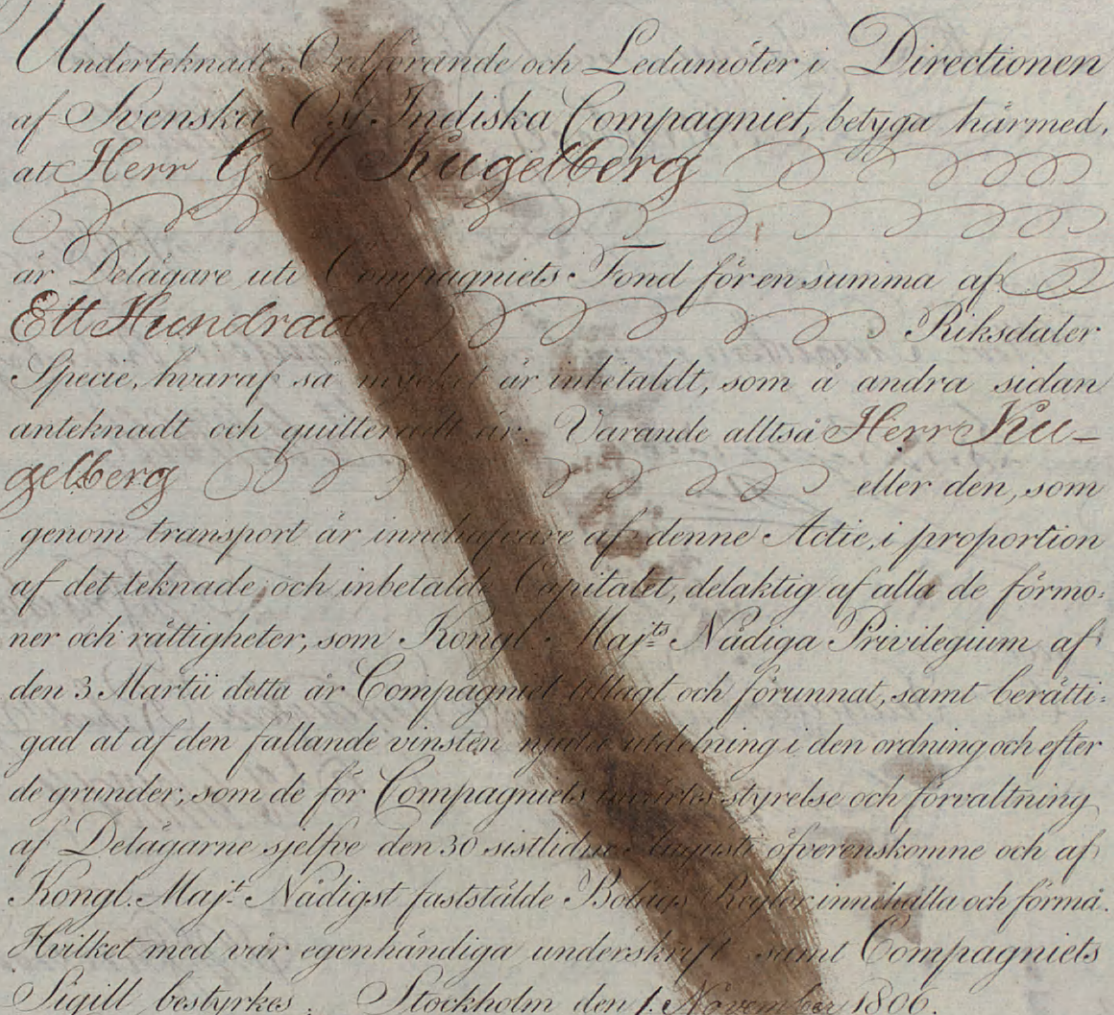 Underteknade Ordförande och Ledamöter i Directionen
af Svenska Ost Indiska Compagniet, betyga härmed,
at Herr G H Kugelberg
är Delägare uti Compagniets Fond för en summa af
Ett Hundrade Riksdaler
Specie, hvaraf så mycket är inbetaldt, som å andra sidan
anteknadt och quitteradt är. Varande alltså Herr Ku-
gelberg eller den, som
genom transport är innehafvare af denne Actie, i proportion
af det teknade och inbetalde Capitalet, delaktig af alla de förmo:
ner och rättigheter, som Kongl. Maj:ts Nådiga Privilegium af
den 3 Martii detta år Compagniet tillagt och förunnat, samt berätti:
gad at af den fallande vinsten njuta utdelning i den ordning och efter
de grunder, som de för Compagniets inwärtes styrelse och förvaltning
af Delägarne sjelfve den 30 sistlidne Augusti öfverenskomne och af
Kongl. Maj:t Nådigst fastställde Bolags Reglor innehålla och förmå.
Hvilket med vår egenhändiga underskrift samt Compagniets
Sigill bestyrkes. Stockholm den 1. November 1806.